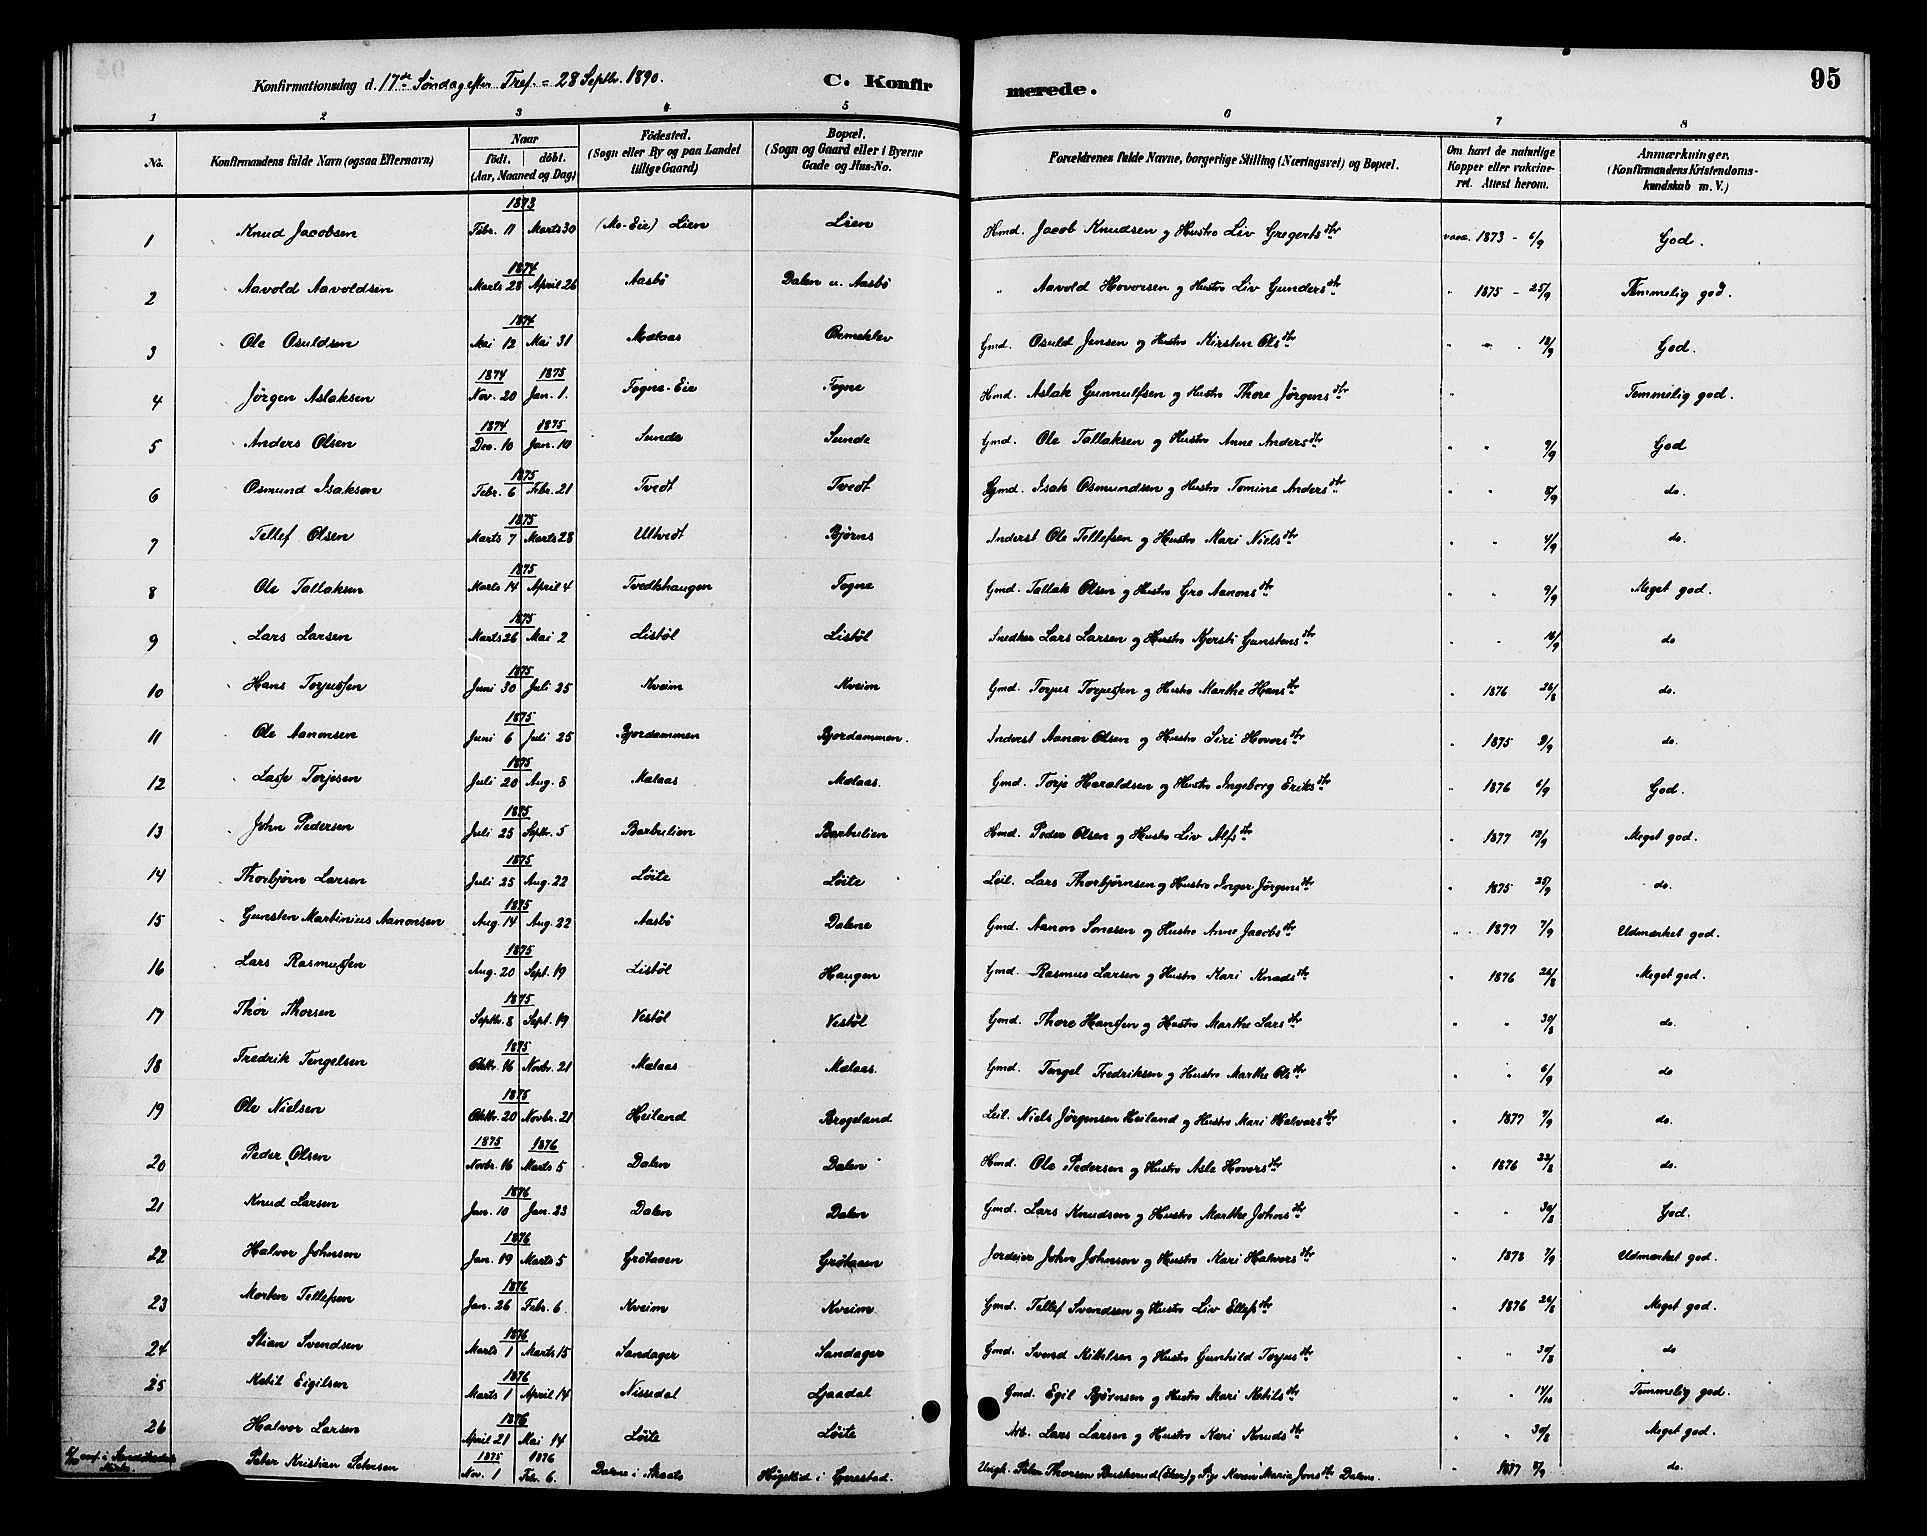 Konfirmationsdag d. 17de Søndag efter Tref. = 28 Septbr. 1890. C. Konfirmerede. 95
1 2 3 4 5 6 7 8
No. Konfirmandens fulde Navn (ogsaa Efternavn) Naar født. døbt. (Aar, Maaned og Dag) Fødested. (Sogn eller By og paa Landet tillige Gaard) Bopæl. (Sogn og Gaard eller i Byerne Gade og Hus-No. Forældrenes fulde Navne, borgerlige Stilling (Næringsvei) og Bopæl. Om havt de naturlige Kopper eller vakcineret. Attest herom. Anmærkninger. (Konfirmandens Kristendomskundskab m. V.)
1 Knud Jacobsen 1873 Febr. 11 Marts 30 (Mo-Eie) Lien Lien Hmd. Jacob Knudsen og Hustro Liv Gregertsdtr vacc. 1873 - 6/9 God.
2 Aavold Aavoldsen 1874 Marts 28 April 26 Aasbø Dalen u. Aasbø " Aavold Hovorsen og Hustro Liv Gundersdtr " 1875 - 25/9 Temmelig god.
3 Ole Osuldsen 1874 Mai 12 Mai 31 Mælaas Gmd. Osuld Jensen og Hustro Kirsten Olsdtr " " " 18/9 God.
4 Jørgen Aslaksen 1874 Nov. 20 1875 Jan. 1. Fogne-Eie Fogne Hmd. Aslak Gunnulfsen og Hustro Thore Jørgensdtr " Temmelig god.
5 Anders Olsen 1874 Dec. 10 1875 Jan. 10 Sunde Sunde Gmd. Ole Tallaksen og Hustro Anne Andersdtr " " 9/9 God
6 Osmund Isaksen 1875 Febr. 6 Febr. 21 Tvedt Tvedt Gmd. Isak Osmundsen og Hustro Tomine Andersdtr " " 8/9 do.
7 Tellef Olsen 1875 Marts 7 Marts 28 Ultvedt Bjørns Inderst Ole Tellefsen og Hustro Mari Nielsdtr " " 4/9 do.
8 Ole Tallaksen 1875 Marts 14 April 4 Tvedthaugen Fogne Gmd. Tallak Olsen og Hustro Gro Aanonsdtr " " 9/9 Meget god.
9 Lars Larsen 1875 Marts 26 Mai 2 Listøl Listøl Snedker Lars Larsen og Hustro Kjersti Gunstensdtr " " 18/9 do
10 Hans Torjussen 1875 Juni 30 Juli 25 Kveim Kveim Gmd. Torjus Torjussen og Hustro Marthe Hansdtr " 1876 26/8 do.
11 Ole Aanonsen 1875 Juni 6 Juli 25 Bjordammen Bjordammen. Inderst Aanon Olsen og Hustro Siri Hovorsdtr " 1875 9/9 do.
12 Lasse Torjesen 1875 Juli 20 Aug. 8 Mælaas Mælaas. Gmd. Torje Haraldsen og Hustro Ingeborg Eriksdtr " 1876 6/9 God.
13 John Pedersen 1875 Juli 25 Septbr. 5 Barbulien Barbulien Hmd. Peder Olsen og Hustro Liv Alfsdtr " 1877 12/9 Meget god.
14 Thorbjørn Larsen 1875 Juli 25 Aug. 22 Løite Løite Leil. Lars Thorbjørnsen og Hustro Inger Jørgensdtr " 1875 25/9 do.
15 Gunsten Martinius Aanonsen 1875 Aug. 14 Aug. 22 Aasbø Dalene Gmd. Aanon Sonesen og Hustro Anne Jacobsdtr " 1877 7/9 Udmærket god.
16 Lars Rasmussen 1875 Aug. 20 Sept. 19 Listøl Haugen Gmd. Rasmus Larsen og Hustro Kari Knudsdtr " 1876 26/8 Meget god.
17 Thor Thorsen 1875 Septbr. 8 Sept. 19 Vestøl Vestøl Gmd. Thore Hanssen og Hustro Marthe Larsdtr " " 30/8 do.
18 Fredrik Tengelsen 1875 Oktbr. 16 Novbr. 21 Mælaas Mælaas. Gmd. Tengel Fredriksen og Hustro Marthe Olsdtr " " 6/9 do
19 Ole Nielsen 1875 Oktbr. 20 Novbr. 21 Heiland Brogeland Leil. Niels Jørgensen Heiland og Hustro Mari Halvorsdtr " 1877 7/9 do.
20 Peder Olsen 1875 Novbr. 16 1876 Marts 5 Dalen Dalen Hmd. Ole Pedersen og Hustro Asle Hovorsdtr " 1876 22/8 do.
21 Knud Larsen 1876 Jan. 10 Jan. 23 Dalen Dalen Gmd. Lars Knudsen og Hustro Marthe Johnsdtr " " 30/8 God.
22 Halvor Johnsen 1876 Jan. 19 Marts 5 Grøtaaen Grøtaaen Jordeier John Johnsen og Hustro Kari Halvorsdtr " 1878 7/9 Udmærket god.
23 Morten Tellefsen 1876 Jan. 26 Febr. 6. Kveim Kveim Gmd. Tellef Svendsen og Hustro Liv Ellefsdtr " 1876 26/8 Meget god.
24 Stian Svendsen 1876 Marts 1 Marts 15 Sandager Sandager Gmd. Svend Kittelsen og Hustro Gunhild Torjusdtr " " 30/8 do
25 Ketil Eigilsen 1876 Marts 1 April 14 Nissedal Ljaadal Gmd. Egil Bjørnsen og Hustro Mari Ketilsdtr " " 14/10 Temmelig god.
26 Halvor Larsen 1876 April 21 Mai 14 Løite Løite Arb. Lars Larsen og Hustro Kari Knudsdtr " " 30/8 Meget god.
Peter Kristian Petersen 1875 Nov. 1 1876 Feb. 6. Darne i Skaatø i Gjerestad. Ungk. Peter Thorsen Buskerud og Pige Maren Maria Jonsdtr Dalene. " 1877 8/9 do.